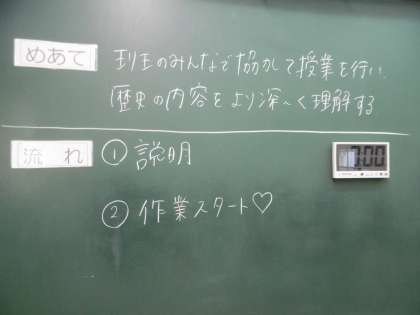 めあて
班のみんなで協力して授業を行い、
歴史の内容をより深〜く理解する
流れ
① 説明
② 作業スタート♡
7:00